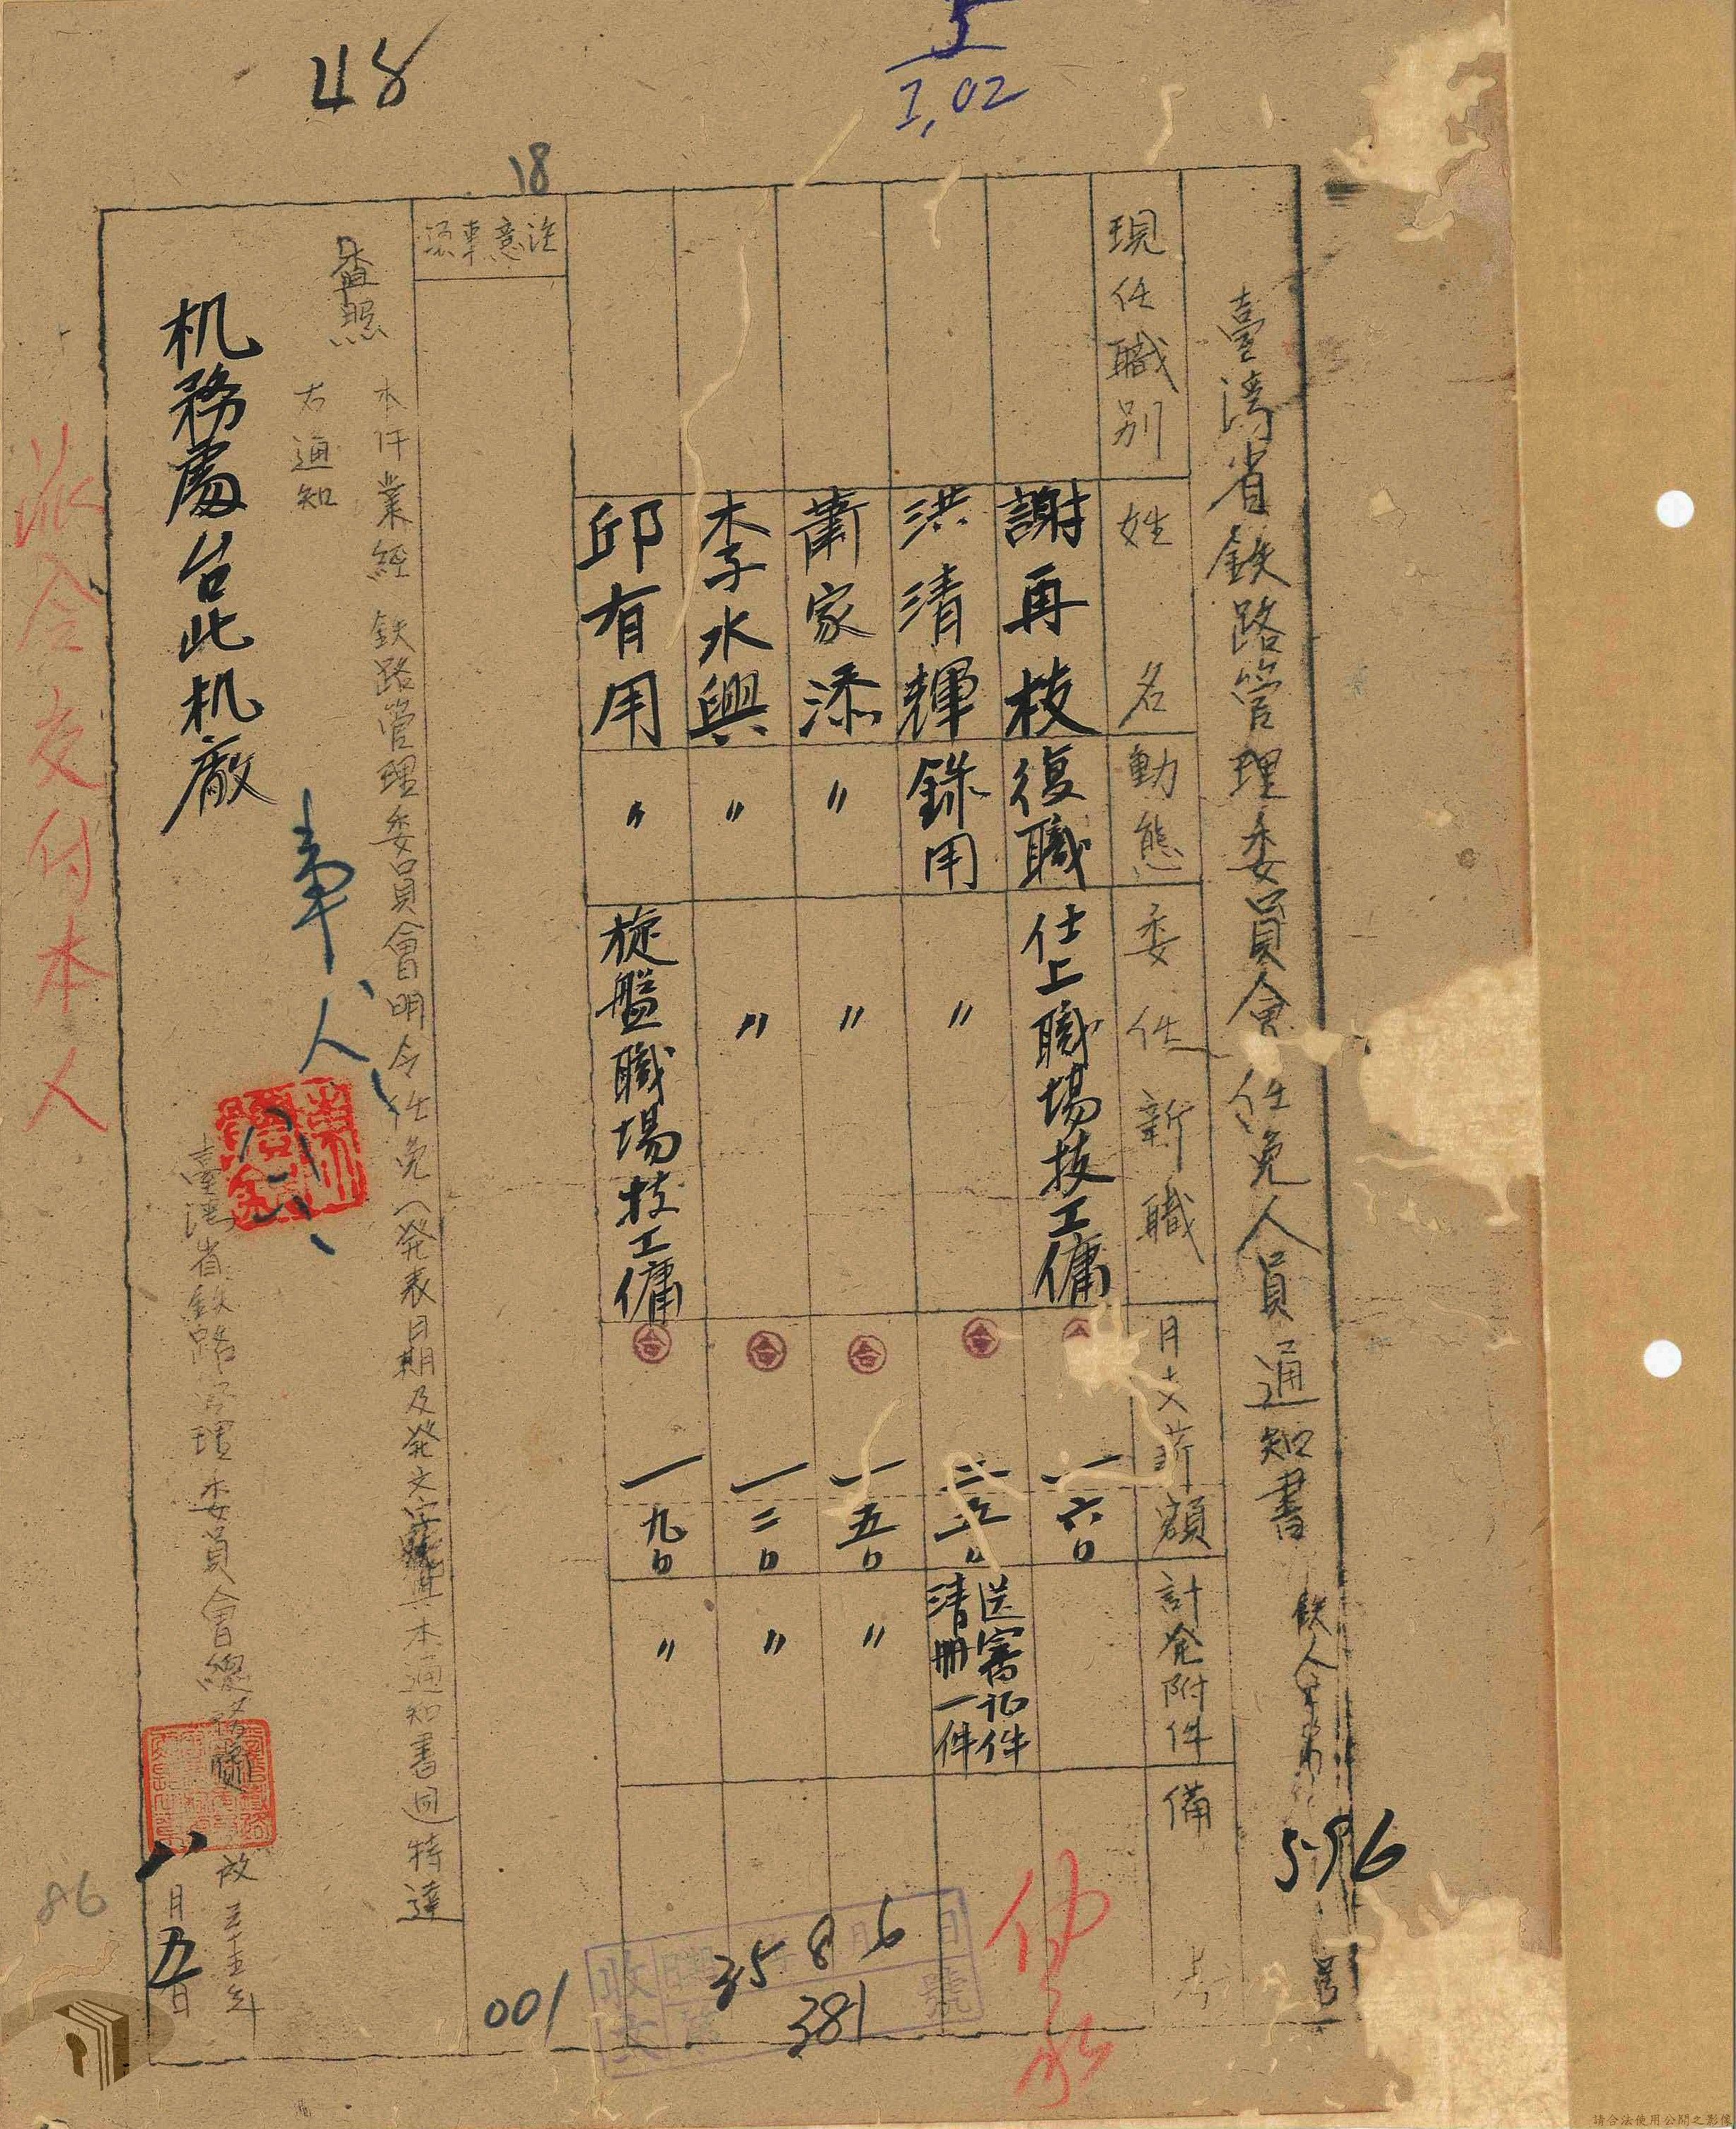 48
18
1,02
臺湾省鉄路管理委員会任免人員通知書
鉄人
596
号
現任職別
姓名
動態
委任新職
月支薪額
計発附件
備考
謝再枝
復職
仕上職場技工傭
一六〇
洪清輝
銖用
〃
送審記件
清冊一件
蕭家添
〃
〃
㊂
一五〇
〃
李水興
〃
〃
一二〇
〃
邱有用
〃
旋盤職場技工傭
一九〇
〃
注意事項
本件業経 鉄路管理委員會明令任免(発表日期及発文字號與本通知書同)特達
查照
右通知
机務處台北机廠
人
八六
臺湾省鉄路管理委員會總務處 啟
三十五年
八月五日
派令交付本人
收文
35 8 6
381
號
001
86
請合法使用公開之影像